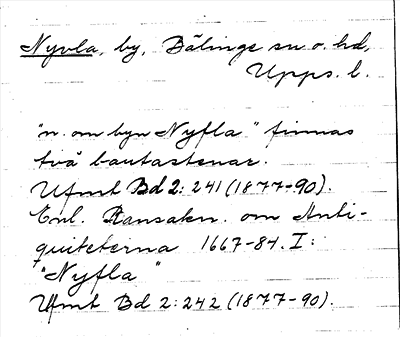 Nyvla, by, Bälinge sn o. hd,
Upps. l.
"n. om byn Nyfla" finnas
två bautastenar.
Ufmt Bd 2: 241 (1877-90).
Enl. Ransaken. om Anti-
quiteterna 1667-84. I:
"Nyfla"
Ufmt Bd 2: 242 (1877-90).